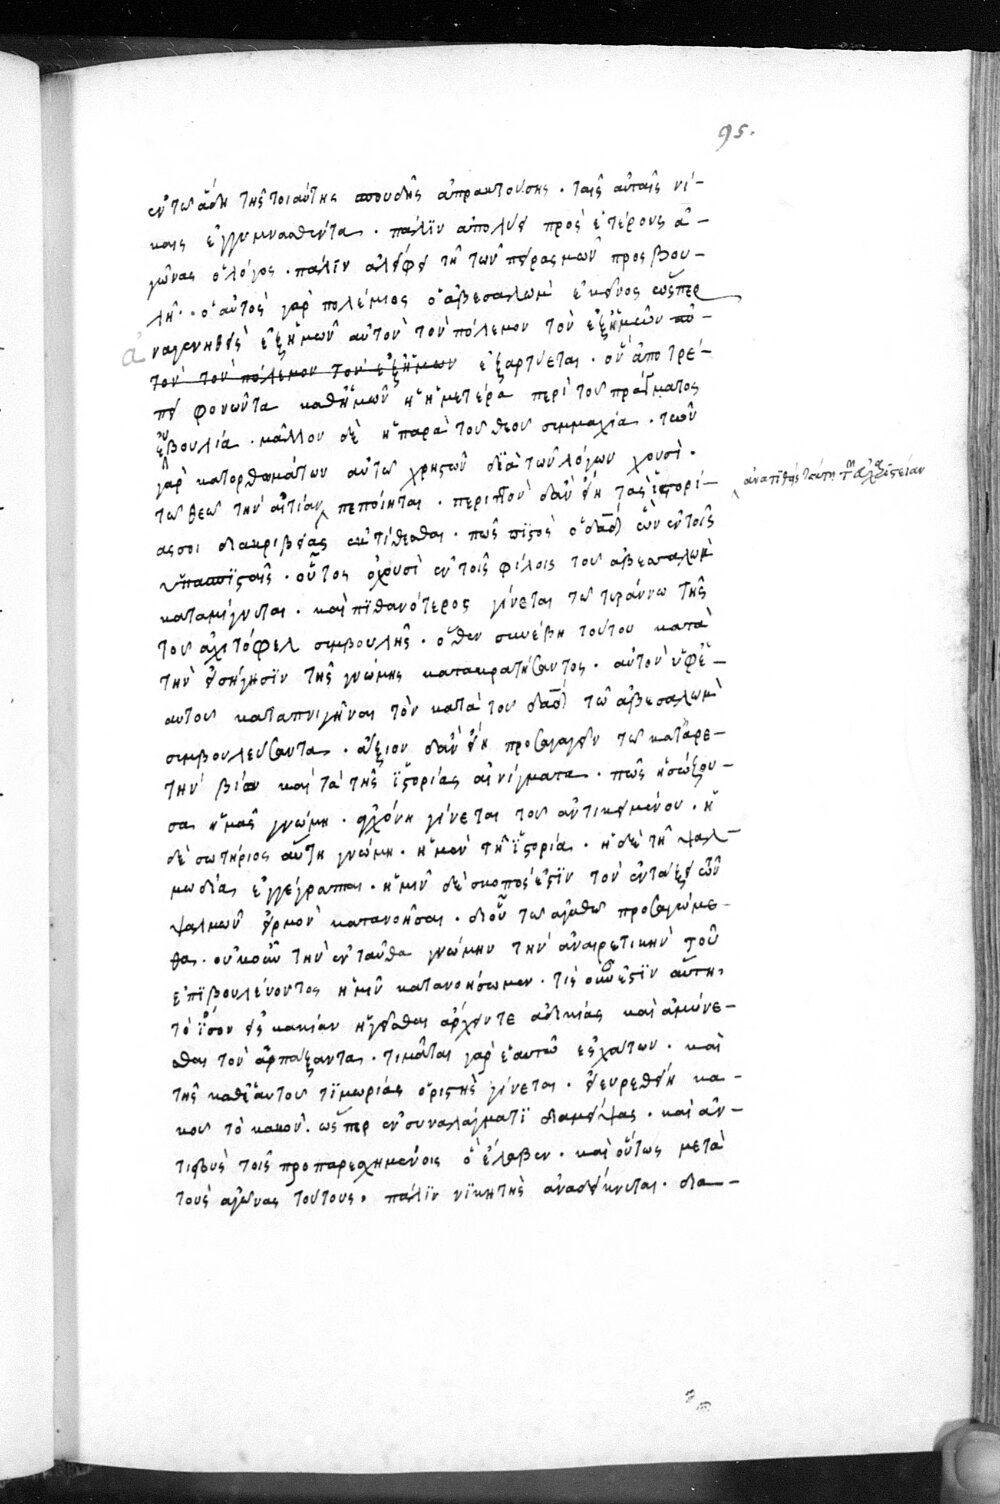 95.
ἐν τῶ ἅδη τῆς τοιαύτης σπουδῆς ἀπρακτούσης . ταῖς αὐταῖς νί-
καις ἐγγυμνασθέντα . πάλϊν ἀπολύει πρὸς ἑτέρους ἀ-
γῶνας ὁ λόγος . πάλϊν ἀλείφει τῆ τῶν πειρασμῶν προσβου-
λῆ . ὁ αὐτὸς γὰρ πολέμιος ὁ ἀβεσαλὼμ ἐκεῖνος ὥσπερ
ἀναγεννηθεὶς ἐξ ἡμῶν αὐτὸν τὸν πόλεμον τὸν ἐξ ἡμῶν αὐ-
τὸν τὸν πόλεμον τὸν ἐξ ἡμῶν ἐξαρτύεται . οὗ ἀποτρέ-
πει φονῶντα καθ ἡμῶν ἡ ἡμετέρα περὶ τοῦ πράγματος
εὐβουλία . μᾶλλον δὲ ἡ παρὰ τοῦ θεοῦ συμμαχία . τῶν
γὰρ κατορθωμάτων αὐτῶ χρηστῶν διὰ τῶν λόγων χουσὶ .
τῶ θεῶ τὴν αἰτίαν πεποίηται . περιττὸν δ ἂν εἴη τὰς ἱστορί-
ας σοι διακριβείας ἐκτίθεσθαι . πῶς πϊστὸς ὁ δα̅δ ὢν ἐν τοῖς
ὑπασπϊσταῖς . οὗτος χουσὶ ἐν τοῖς φίλοις τοῦ ἀβεσαλὼμ
καταμίγνυται . καὶ πϊθανότερος γίνεται τῶ τυράννω τῆς
τοῦ ἀχιτόφελ συμβουλῆς . ὅθεν συνέβη τούτου κατὰ
τὴν εἰσήγησϊν τῆς γνώμης κατακρατήσαντος . αὐτὸν ὑφ ἑ-
αυτοῦ καταπνιγῆναι τὸν κατὰ τοῦ δα̅δ τῶ ἀβεσαλὼμ
συμβουλεύσαντα . ἄξιον δ ἂν εἴη προσαγαγεῖν τῶ κατ ἀρε-
τὴν βίω καὶ τὰ τῆς ϊστορίας αἰνίγματα . πῶς ἡ σώζου-
σα ἡμᾶς γνώμη . ἀγχόνη γίνεται τοῦ ἀντικειμένου . ἡ
δὲ σωτήριος αὕτη γνώμη . ἡ μὲν τῆ ϊστορία . ἡ δὲ τῆ ψαλ-
μωδία ἐγγέγραπται . ἡμῖν δὲ σκοπὸς ἐστϊν τὸν ἐν τάξει τῶν
ψαλμῶν εἱρμὸν κατανοῆσαι . δι οὗ τῶ ἀγαθῶ προσαγώμε-
θα . οὐκοῦν τὴν ἐνταῦθα γνώμην τὴν ἀναιρετικὴν τοῦ
ἐπϊβουλεύοντος ἡμῖν κατανοήσωμεν . τίς οὖν ἐστϊν αὕτη ,
τὸ ἴσον εἰς κακίαν ἡγεῖσθαι ἄρχειν τε ἀδικίας καὶ ἀμύνε-
σθαι τὸν ἁρπάξαντα . τιμᾶται γὰρ ἑαυτῶ ἐσχάτων . καὶ
τῆς καθ ἑαυτοῦ τϊμωρίας ὁριστὴς γίνεται . εἰ εὑρεθείη κα-
κοῦ τὸ κακὸν . ὥσπερ ἐν συναλλάγματϊ διαμείψας . καὶ ἀν-
τιδοὺς τοῖς προπαρεσχημένοις ὃ ἔλαβεν . καὶ οὕτως μετὰ
τοὺς ἀγῶνας τούτους , πάλϊν νϊκητὴς ἀναδείκνυται . δια-